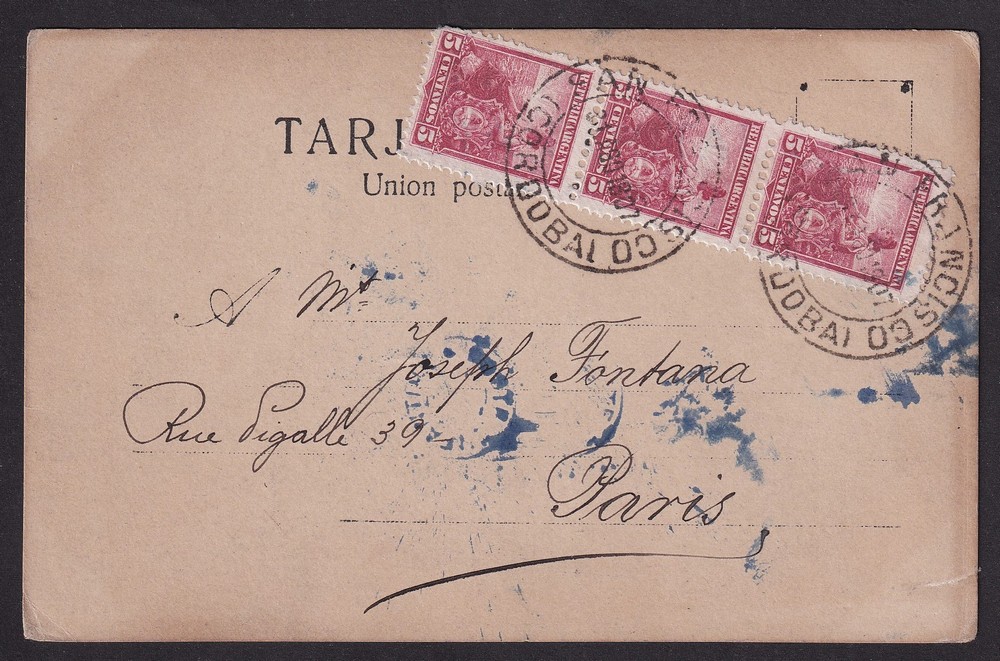 TARJ
Union posta
5 CENTAVOS 5
REPUBLICA ARGENTINA
5 CENTAVOS 5
REPUBLICA ARGENTINA
5 CENTAVOS 5
REPUBLICA ARGENTINA
SAN FRANCISCO (CORDOBA)
SAN FRANCISCO (CORDOBA)
A Mr
Joseph Fontana
Rue Pigalle 39-
Paris